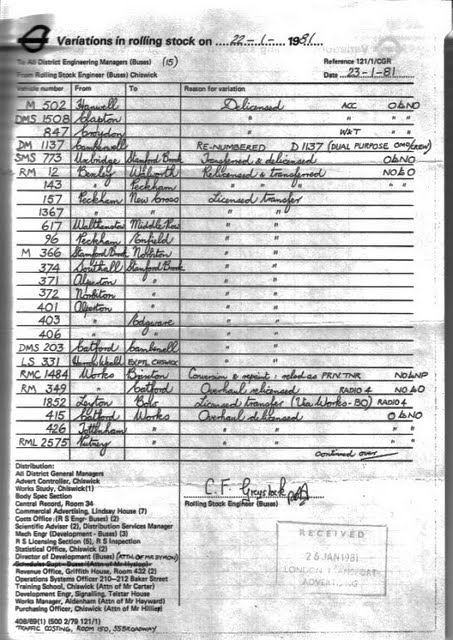 Variations in rolling stock on 22-1- 1981.
To All District Engineering Managers (Buses) (15)
Reference 121/1/CGR
From Rolling Stock Engineer (Buses) Chiswick
Date 23-1-81
Vehicle number From To Reason for variation
M 502 Hanwell Delicensed ACC O to NO
DMS 1508 Clapton " " "
847 Croydon " W&T " "
DM 1137 Camberwell RE-NUMBERED D 1137 (DUAL PURPOSE OMO/CREW)
SMS 773 Uxbridge Stamford Brook Transferred & delicensed O to NO
RM 12 Bexley Walworth Relicensed & transferred NO to O
143 " Peckham " " " "
157 Peckham New Cross Licensed transfer
1367 " " " "
617 Walthamstow Middle Row " "
96 Peckham Enfield " "
M 366 Stamford Brook Norbiton " "
374 Southall Stamford Brook " "
371 Alperton " " "
372 Norbiton " " "
401 Alperton " " "
403 " Edgware " "
406 " " " "
DMS 203 Catford Camberwell " "
LS 331 EXPTL CHISWICK " "
RMC 1484 Works Conversion & repaint: relicd as PRIV. TNR NO to NP
RM 349 " Catford Overhaul relicensed RADIO 4 NO to O
1852 Leyton Bow Licensed transfer (Via Works-BO) RADIO 4
415 Catford Works Overhaul delicensed O to NO
426 Tottenham " " " " "
RML 2575 Putney " " " " "
continued over
Distribution:
All District General Managers
Advert Controller, Chiswick
Works Study, Chiswick(1)
Body Spec Section
Central Record, Room 34
Commercial Advertising, Lindsay House (7)
Costs Office (R S Engr- Buses) (2)
Scientific Adviser (2), Distribution Services Manager
Mech Engr (Development - Buses) (3)
R S Licensing Section (5), R S Inspection
Statistical Office, Chiswick (2)
Director of Development (Buses) (ATTN. OF MR
Schedules Supt - Buses (Attn of Mr
Revenue Office, Griffith House, Room 432 (2)
Operations Systems Officer 210-212 Baker Street
Training School, Chiswick (Attn of Mr Carter)
Development Engr, Signalling, Telstar House
Works Manager, Aldenham (Attn of Mr Hayward)
Purchasing Officer, Chiswick (Attn of Mr Hillier)
C. F. Greystock
Rolling Stock Engineer (Buses)
RECEIVED
26 JAN 1981
LONDON TRANSPORT
ADVERTISING
408/69(1) (500 2/79 121/1)
TRAFFIC COSTING, ROOM 150, 55 BROADWAY